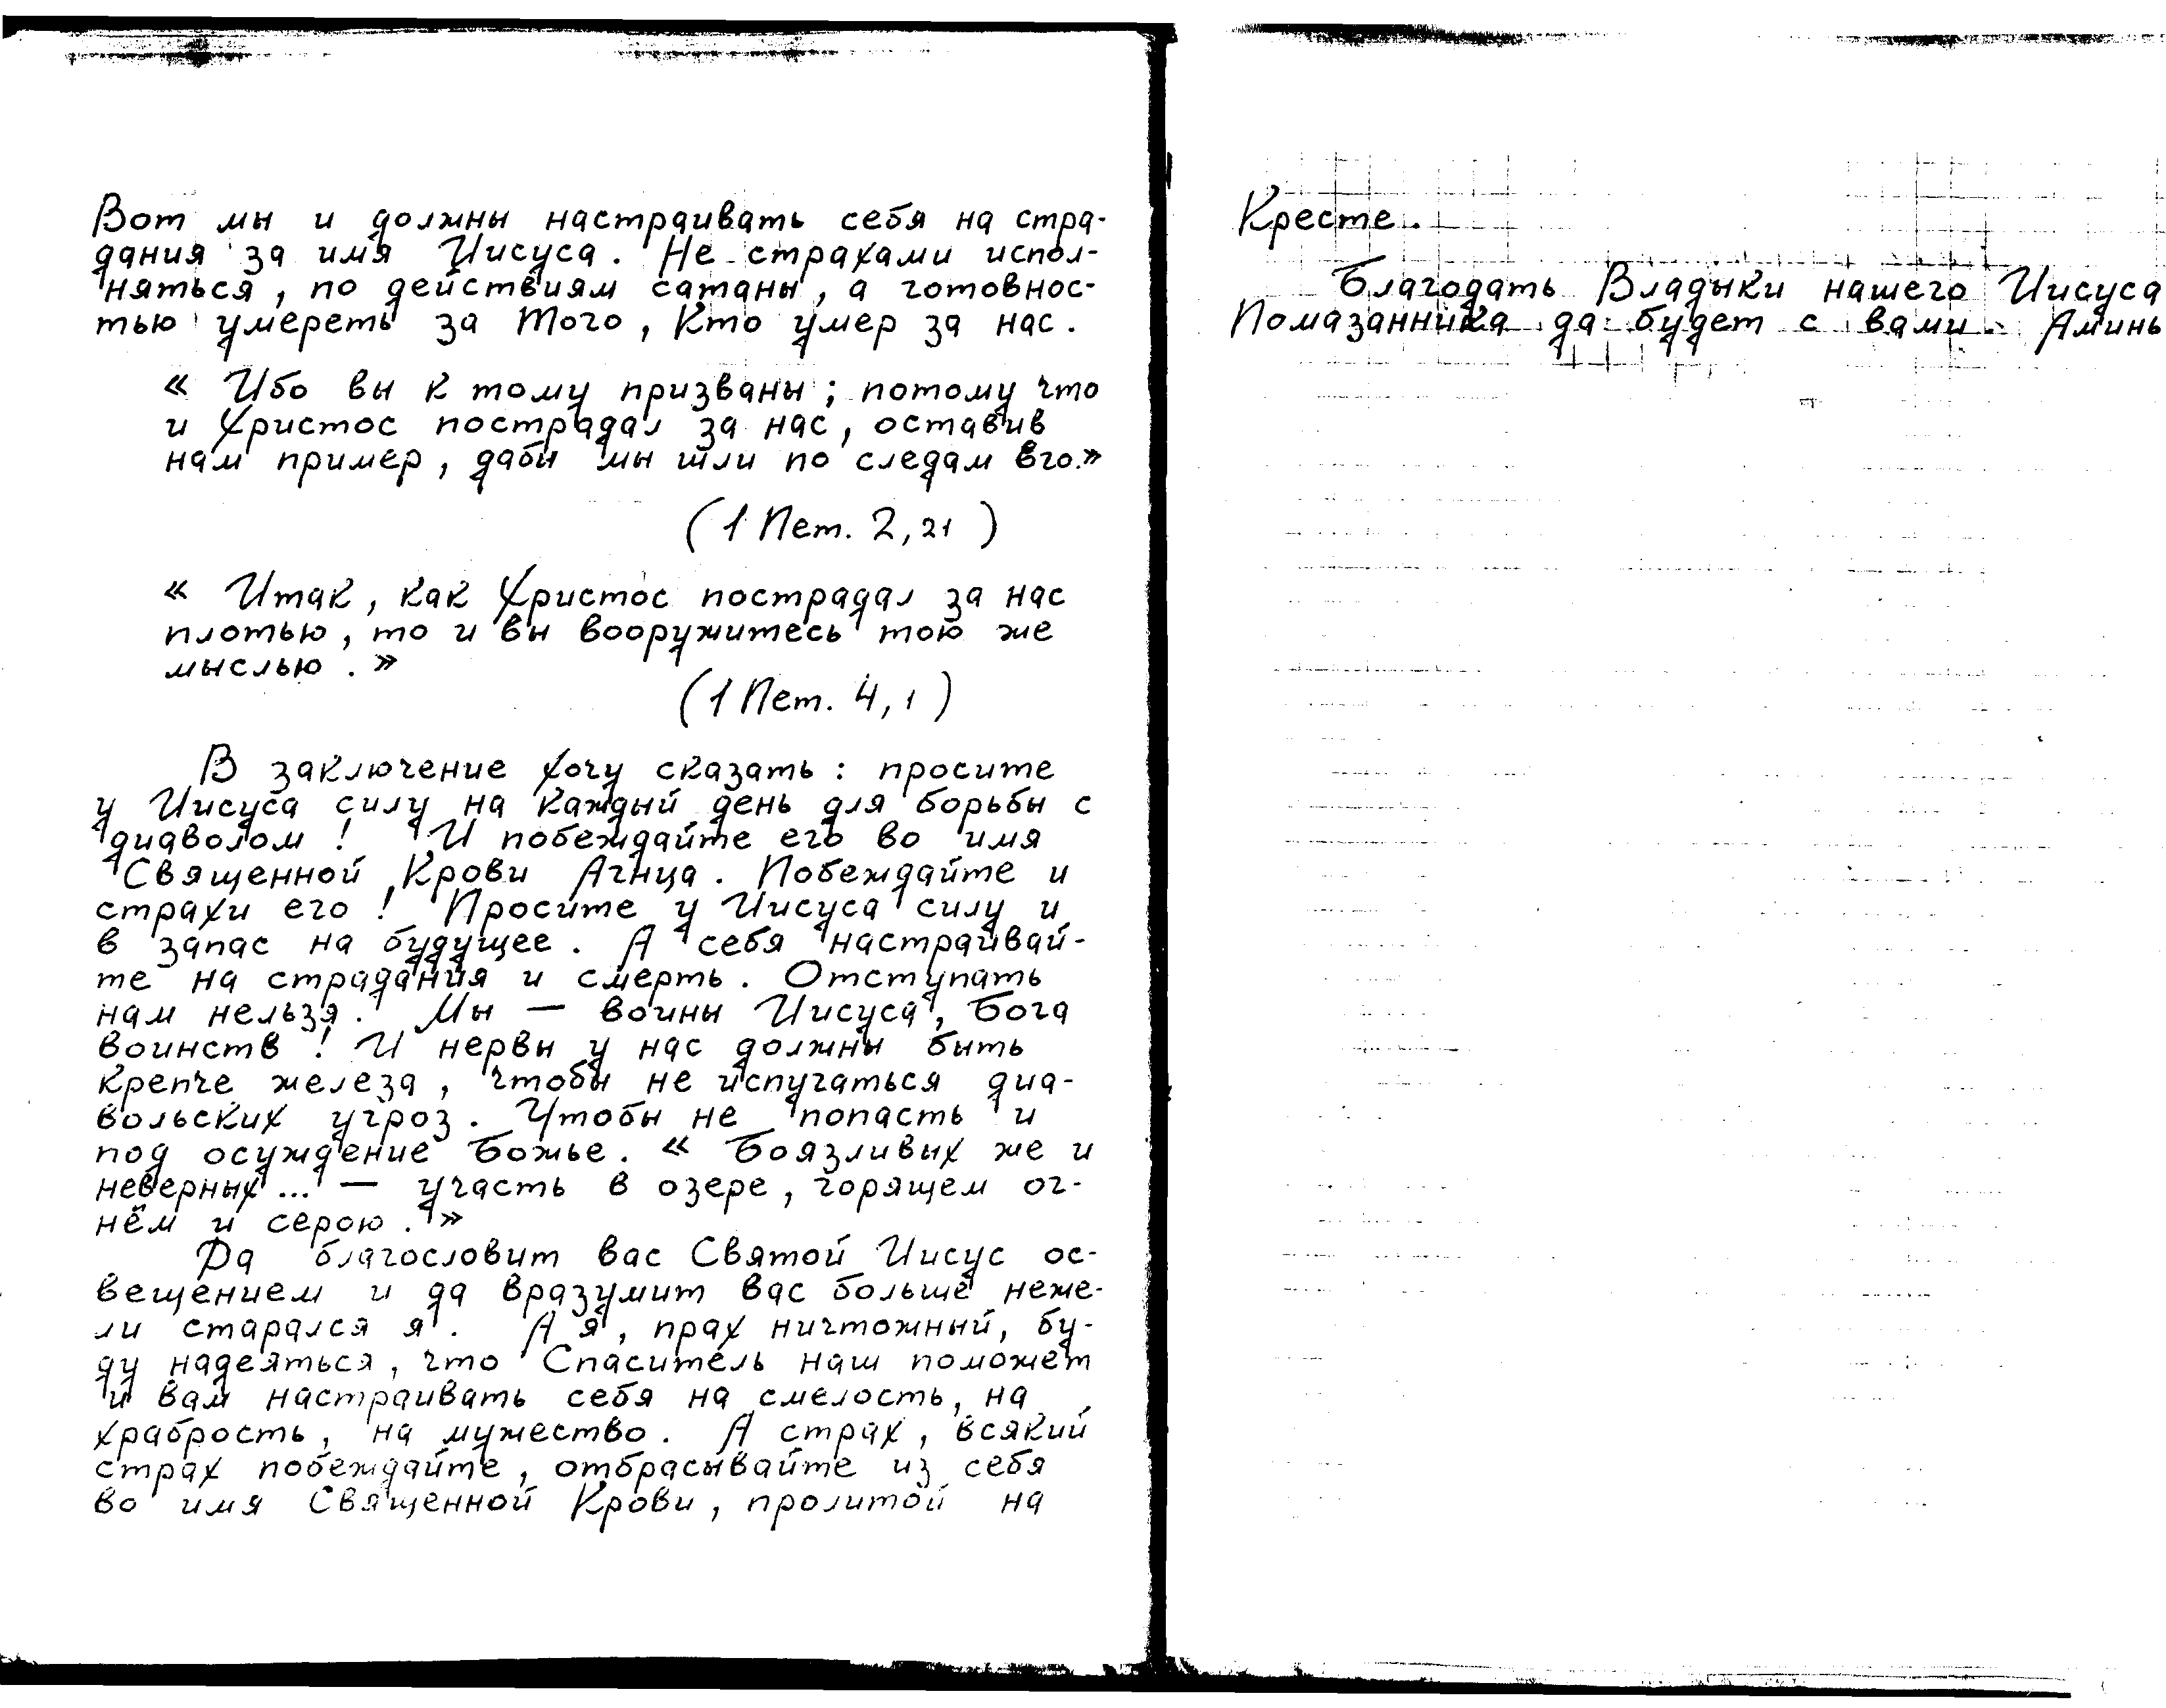 Вот мы и должны настраивать себя на стра-
дания за имя Иисуса. Не страхами испол-
няться, по действиям сатаны, а готовнос-
тью умереть за Того, Кто умер за нас.
« Ибо вы к тому призваны; потому что
и Христос пострадал за нас, оставив
нам пример, дабы мы шли по следам Его.»
(1 Пет. 2,21)
« Итак, как Христос пострадал за нас
плотью, то и вы вооружитесь тою же
мыслью.»
(1 Пет. 4,1)
В заключение хочу сказать: просите
у Иисуса силу на каждый день для борьбы с
диаволом! И побеждайте его во имя
Священной Крови Агнца. Побеждайте и
страхи его! Просите у Иисуса силу и
в запас на будущее. А себя настраивай-
те на страдания и смерть. Отступать
нам нельзя. Мы — воины Иисуса, Бога
воинств! И нервы у нас должны быть
крепче железа, чтобы не испугаться диа-
вольских угроз. Чтобы не попасть и
под осуждение Божье. « Боязливых же и
неверных... — участь в озере, горящем ог-
нём и серою.»
Да благословит вас Святой Иисус ос-
вещением и да вразумит вас больше неже-
ли старался я. А я, прах ничтожный, бу-
ду надеяться, что Спаситель наш поможет
и вам настраивать себя на смелость, на
храбрость, на мужество. А страх, всякий
страх побеждайте, отбрасывайте из себя
во имя Священной Крови, пролитой на
Кресте.
Благодать Владыки нашего Иисуса
Помазанника да будет с вами. Аминь